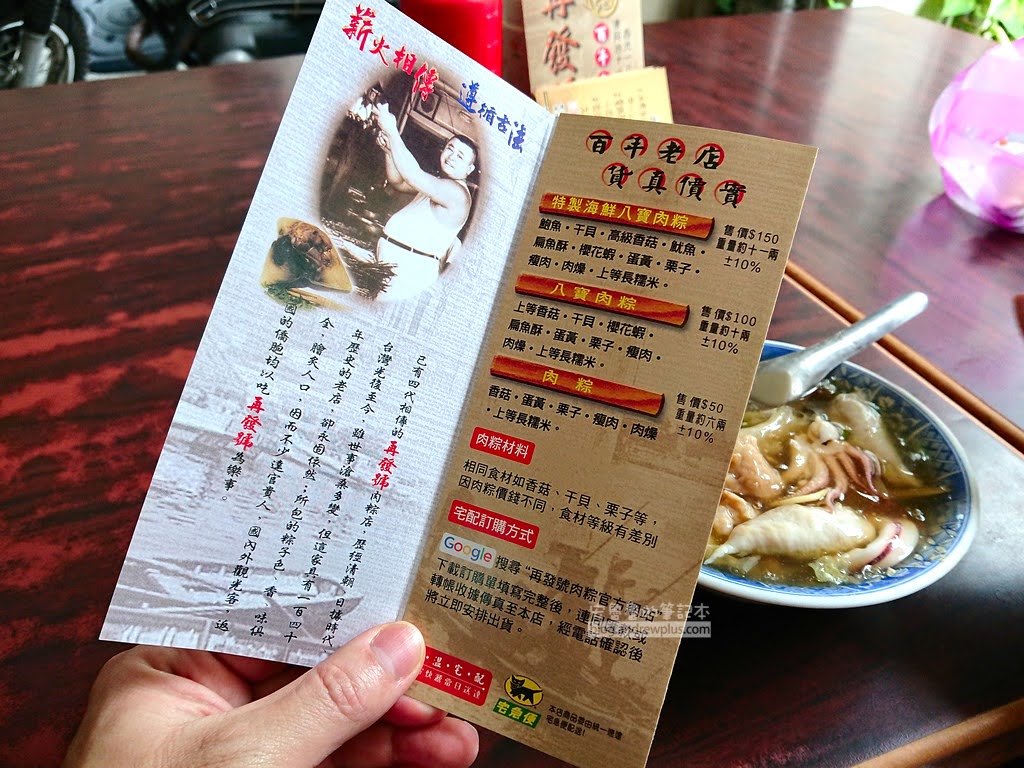 薪火相傳
遵循古法
已有四代相傳的再發號肉粽店,歷經清朝、日據時代、
台灣光復至今,雖世事滄桑多變,但這家具有一百四十
年歷史的老店,卻永固依然;所包的粽子色、香、味俱
全,膾炙人口,因而不少達官貴人,國內外觀光客,返
國的僑胞均以吃再發號為樂事。
百年老店
貨真價實
特製海鮮八寶肉粽
售價$150
重量約十一兩
±10%
鮑魚・干貝・高級香菇・魷魚・
扁魚酥・櫻花蝦・蛋黃・栗子・
瘦肉・肉燥・上等長糯米。
八寶肉粽
售價$100
重量約十兩
±10%
上等香菇・干貝・櫻花蝦・
扁魚酥・蛋黃・栗子・瘦肉・
肉燥・上等長糯米。
肉粽
售價$50
重量約六兩
±10%
香菇・蛋黃・栗子・瘦肉・肉燥
・上等長糯米。
肉粽材料
相同食材如香菇、干貝、栗子等,
因肉粽價錢不同,食材等級有差別
宅配訂購方式
Google 搜尋“再發號肉粽官方網站
下載訂購單填寫完整後,連
轉帳收據傳真至本店,經電話確認後
將立即安排出貨。
溫・宅・配
快藏當日送達
宅急便
本店商品委由統一速達
宅急便配送!
再發
百年